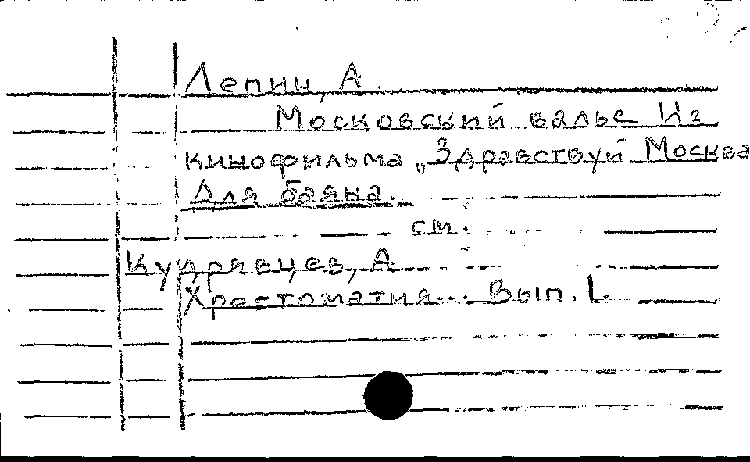 Лепин, А.
Московский вальс Из
кинофильма „Здравствуй Москва
Для баяна.
см.
Кудрявцев, А.
Хрестоматия... Вып. 1.